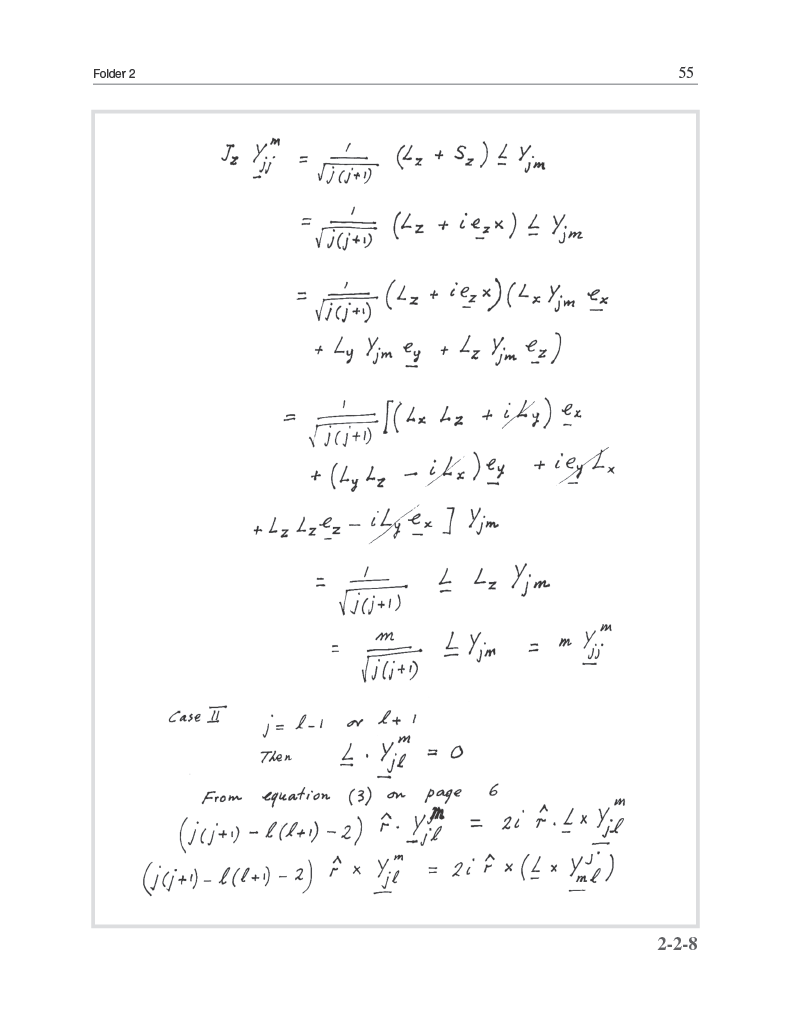 Folder 2 55
J_z Y_jj^m = 1/√(j(j+1)) (L_z + S_z) L Y_jm
= 1/√(j(j+1)) (L_z + i e_z ×) L Y_jm
= 1/√(j(j+1)) (L_z + i e_z ×)(L_x Y_jm e_x
+ L_y Y_jm e_y + L_z Y_jm e_z)
= 1/√(j(j+1)) [(L_x L_z + i L_y) e_x
+ (L_y L_z - i L_x) e_y + i e_y L_x
+ L_z L_z e_z - i L_y e_x ] Y_jm
= 1/√(j(j+1)) L L_z Y_jm
= m/√(j(j+1)) L Y_jm = m Y_jj^m
Case II j = l-1 or l+1
Then L · Y_jl^m = 0
From equation (3) on page 6
(j(j+1) - l(l+1) - 2) r̂ · Y_jl^m = 2i r̂ · L × Y_jl^m
(j(j+1) - l(l+1) - 2) r̂ × Y_jl^m = 2i r̂ × (L × Y_ml^j)
2-2-8